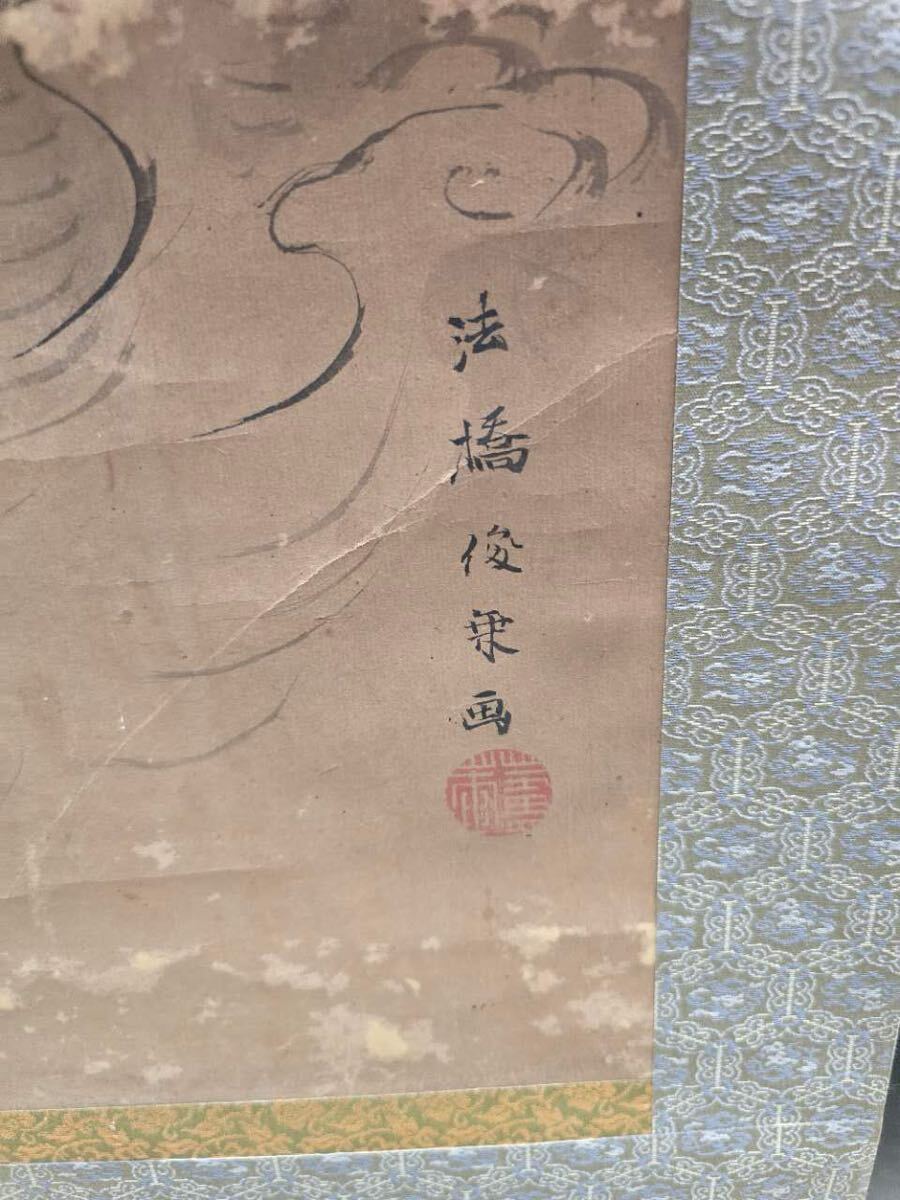 法橋俊乗画